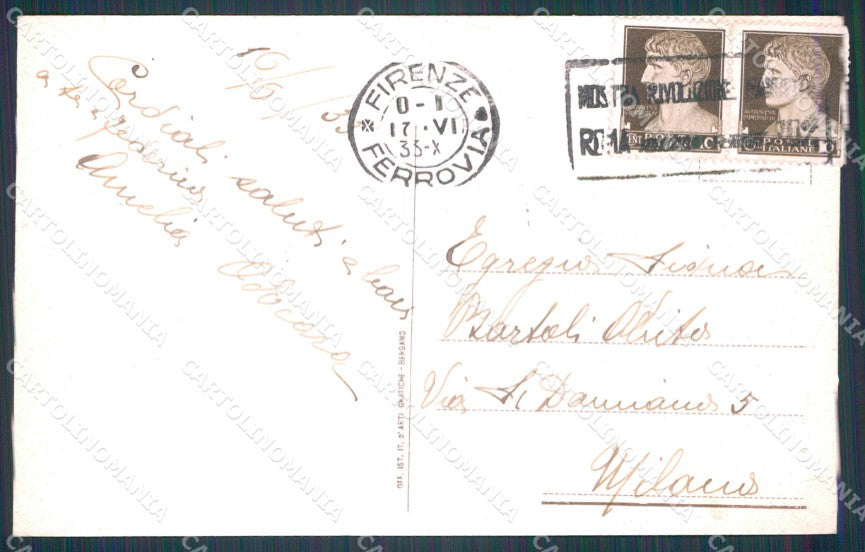 16/6/33
Cordiali saluti a
a te e Federico
Amelia
FIRENZE
0-1
17·VI
33-X
FERROVIA
MOSTRA RIVOLUZIONE
ROMA
CENT POSTE
ITALIANE
Egregio Signor
Bartoli
Via S. Damiano 5
Milano
OFF. IST. IT. D'ARTI GRAFICHE - BERGAMO
CARTOLINOMANIA